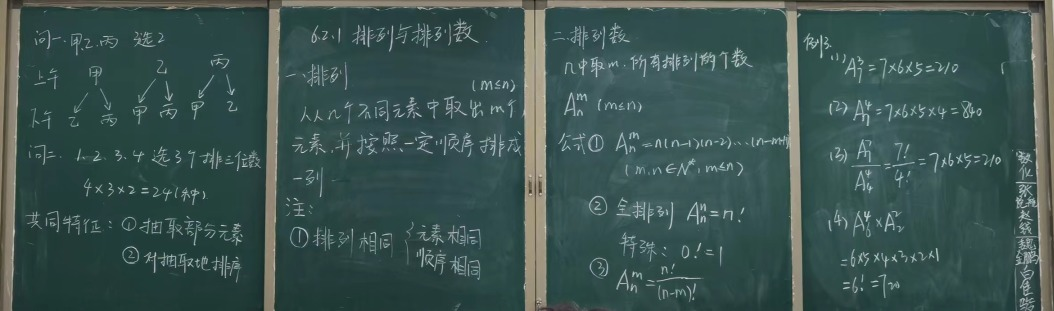 问一.甲乙.丙 选2
上午 甲 乙 丙
下午 乙 丙 甲 丙 甲 乙
问二. 1.2.3.4 选3个排三位数
4×3×2=24(种)
共同特征: ①抽取部分元素
②对抽取地排序
6.2.1 排列与排列数.
一.排列 (m≤n)
从n个不同元素中取出m个
元素,并按照一定顺序排成
一列.
注:
①排列相同 { 元素相同
顺序相同
二.排列数
n中取m.所有排列的个数
A_n^m (m≤n)
公式① A_n^m=n(n-1)(n-2)…(n-m+1)
(m,n∈N*,m≤n)
② 全排列 A_n^n=n!
特殊: 0!=1
③ A_n^m=n!/(n-m)!
例3.
(1) A_7^3=7×6×5=210
(2) A_7^4=7×6×5×4=840
(3) A_7^7/A_4^4=7!/4!=7×6×5=210
(4) A_6^4×A_2^2
=6×5×4×3×2×1
=6!=720
数
化
张
赵
魏
白